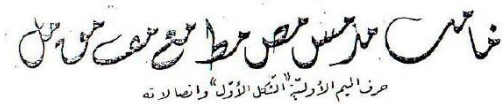 ما مب مد مس مص مط مع مف مق مل
حرف الميم الأوليّة "الشّكل الأوّل" واتصالاته